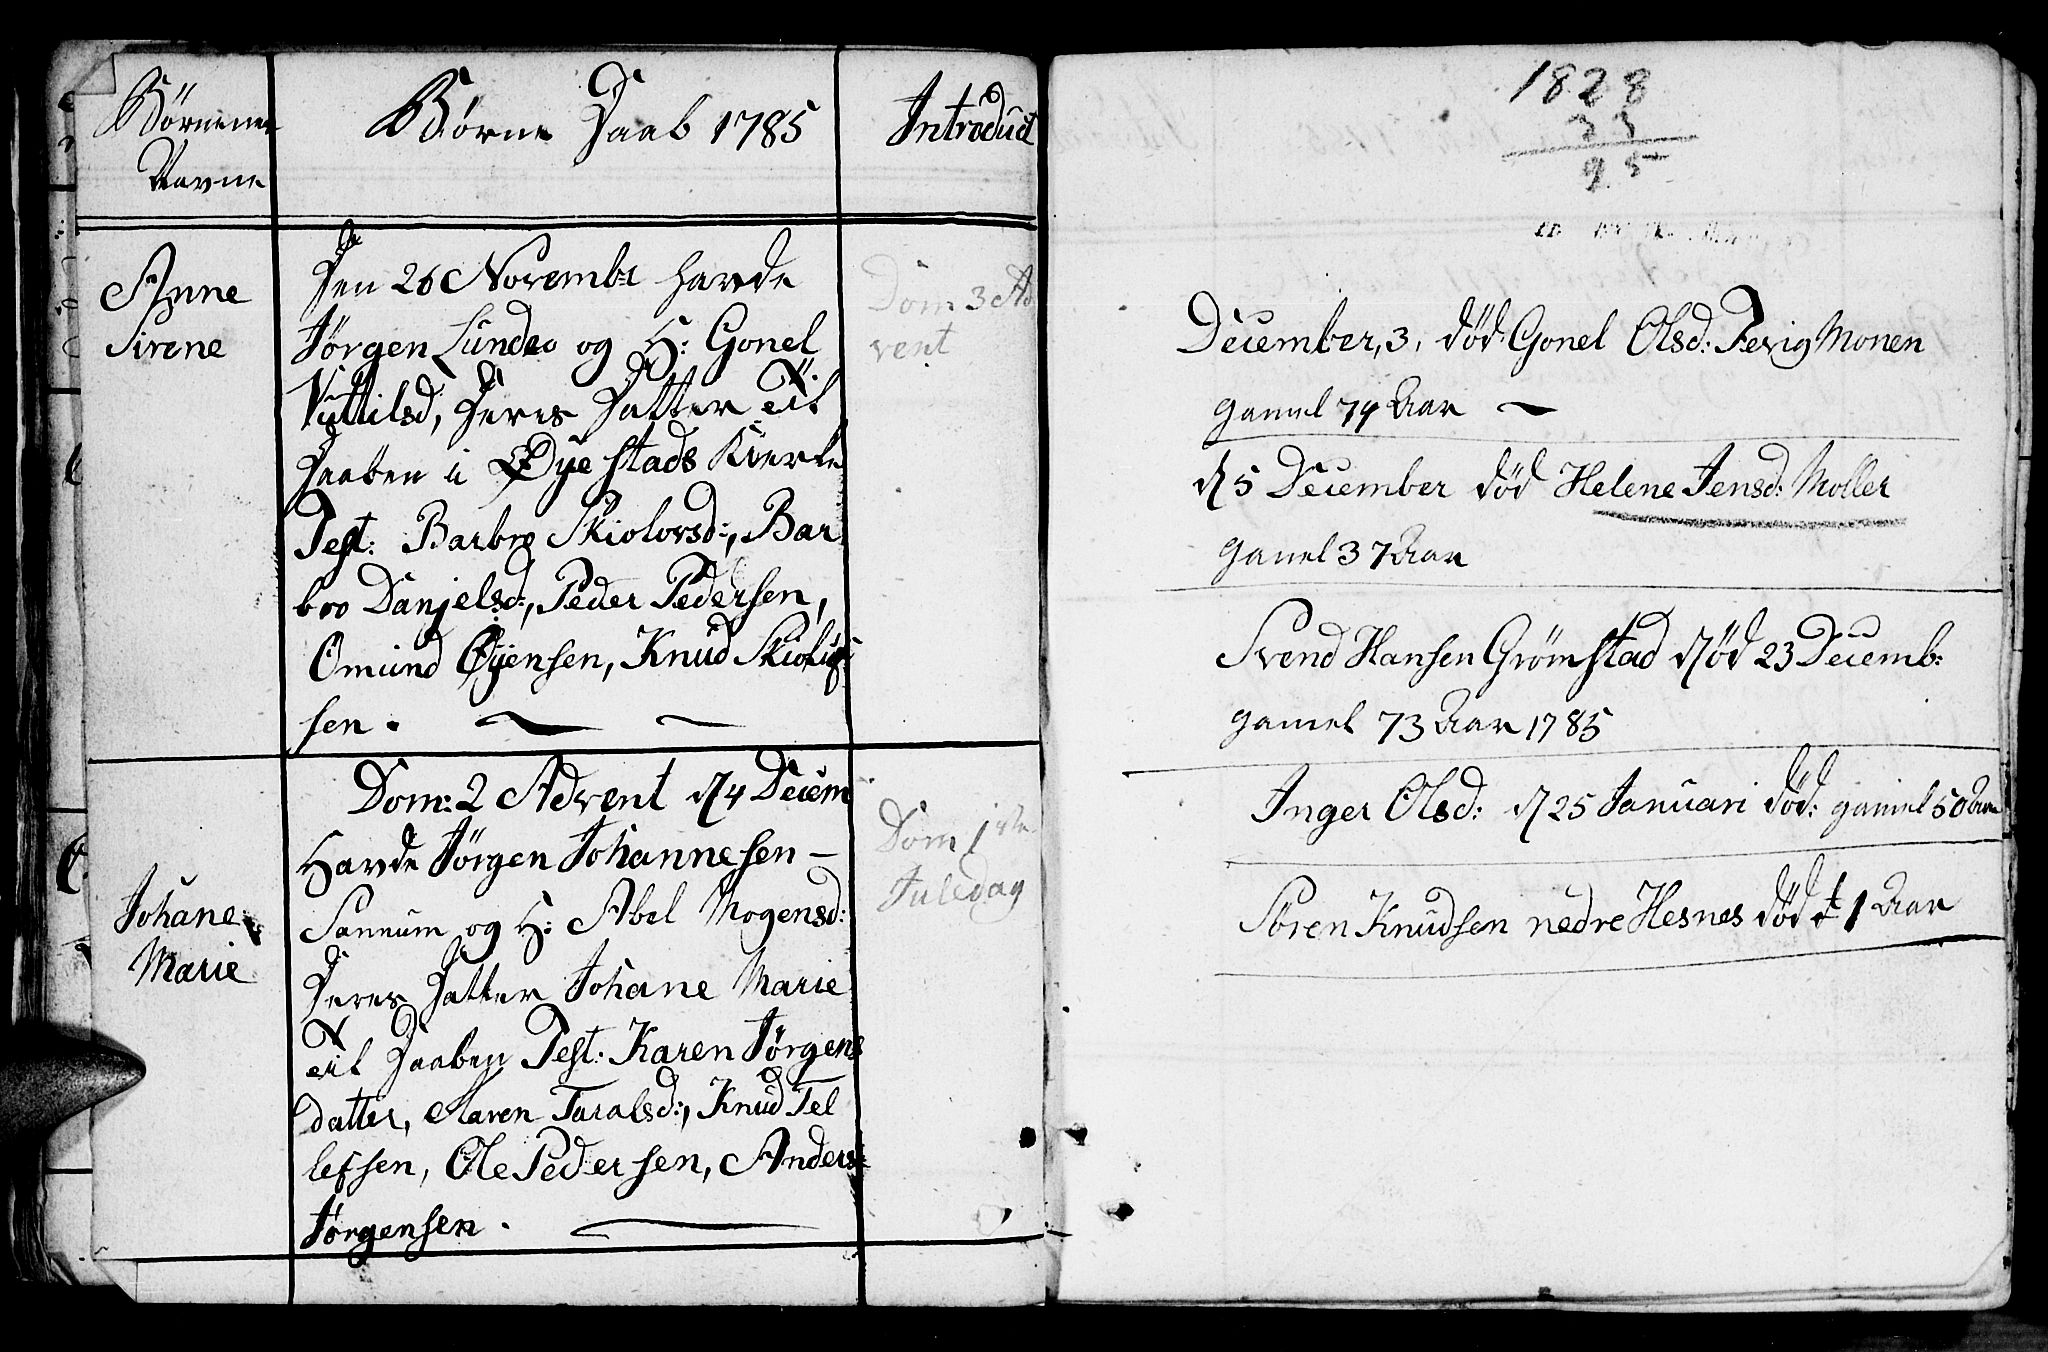 Børnenes
Navne
Børne Daab 1785
Introduct
Anne
Sirene
Den 26 Novembr havde
Jørgen Lundeo og H: Gonel
Vuttilsd, Deres Datter til
Daaben i Øyestads Kierke
Test: Barbro Skiolovsd:, Bar
broo Danjelsd:, Peder Pedersen,
Omund Øyensen, Knud Skiolufs
sen.
Dom 3 Ad
vent
Johane
Marie
Dom: 2 Advent d 4 Decem
Havde Jørgen Johannesen –
Sannum og H: Abel Mogensd:
Deres Datter Johane Marie
til Daaben Test: Karen Jørgens
datter, Maren Taralsd:, Knud Tel
lefsen, Ole Pedersen, Anders
Jørgensen.
Dom 1ste
Juledag
1828
33
95
December, 3, død Gonel Olsd: Fevig Monen
gamel 74 Aar
d 5 December død Helene Jensd: Moller
gamel 37 Aar
Svend Hansen Grømstad død 23 Decemb:
gamel 73 Aar 1785
Inger Olsd: d 25 Januari død: gamel 50 Aar
Søren Knudsen nedre Hesnes død 1 Aar